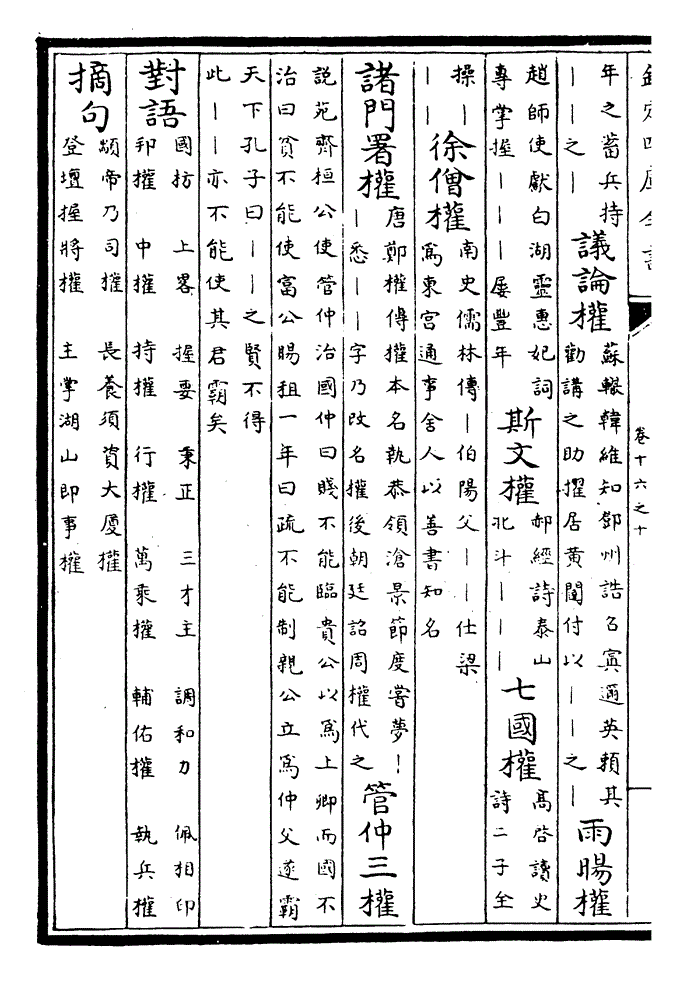 欽定四庫全書
卷十六之十
年之蓄兵持
——之—
議論權
蘇轍韓維知鄧州誥召寘邇英賴其
勸講之助擢居黃閣付以——之—
雨暘權
趙師使獻白湖靈惠妃詞
專掌握———屢豐年
斯文權
郝經詩泰山
北斗———
七國權
高啓讀史
詩二子全
操—
——
徐僧權
南史儒林傳—伯陽父——仕梁
為東宮通事舍人以善書知名
諸門署權
唐鄭權傳權本名執恭領滄景節度嘗夢—
—悉——字乃改名權後朝廷詔周權代之
管仲三權
說苑齊桓公使管仲治國仲曰賤不能臨貴公以為上卿而國不
治曰貧不能使富公賜租一年曰疏不能制親公立為仲父遂霸
天下孔子曰——之賢不得
此——亦不能使其君霸矣
對語
國枋 上畧 握要 秉正 三才主 調和力 佩相印
邦權 中權 持權 行權 萬乘權 輔佑權 執兵權
摘句
顓帝乃司權 長養須資大廈權
登壇握將權 主掌湖山即事權